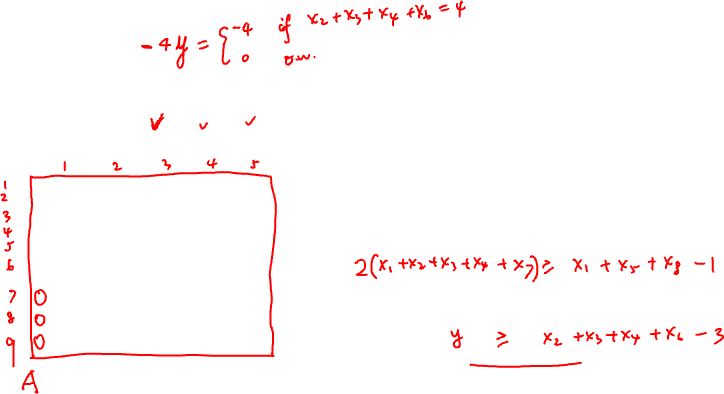 -4y = { -4 if x₂+x₃+x₄+x₆ = 4
0 o.w.
✓ ✓ ✓
1 2 3 4 5
1
2
3
4
5
6
7 0
8 0
9 0
A
2(x₁+x₂+x₃+x₄+x₇) ≥ x₁+x₅+x₈-1
y ≥ x₂+x₃+x₄+x₆-3